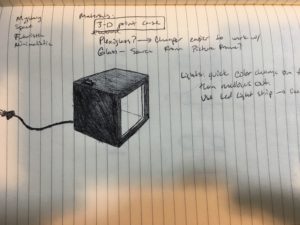 Mystery
Spot
Futuristic
Minimalistic
Materials:
3-D print case
Plexiglass? → Cheaper easier to work w/
Glass - Source From Picture Frame?
Lights: quick color change on
then mellows out
Use Led light strip →